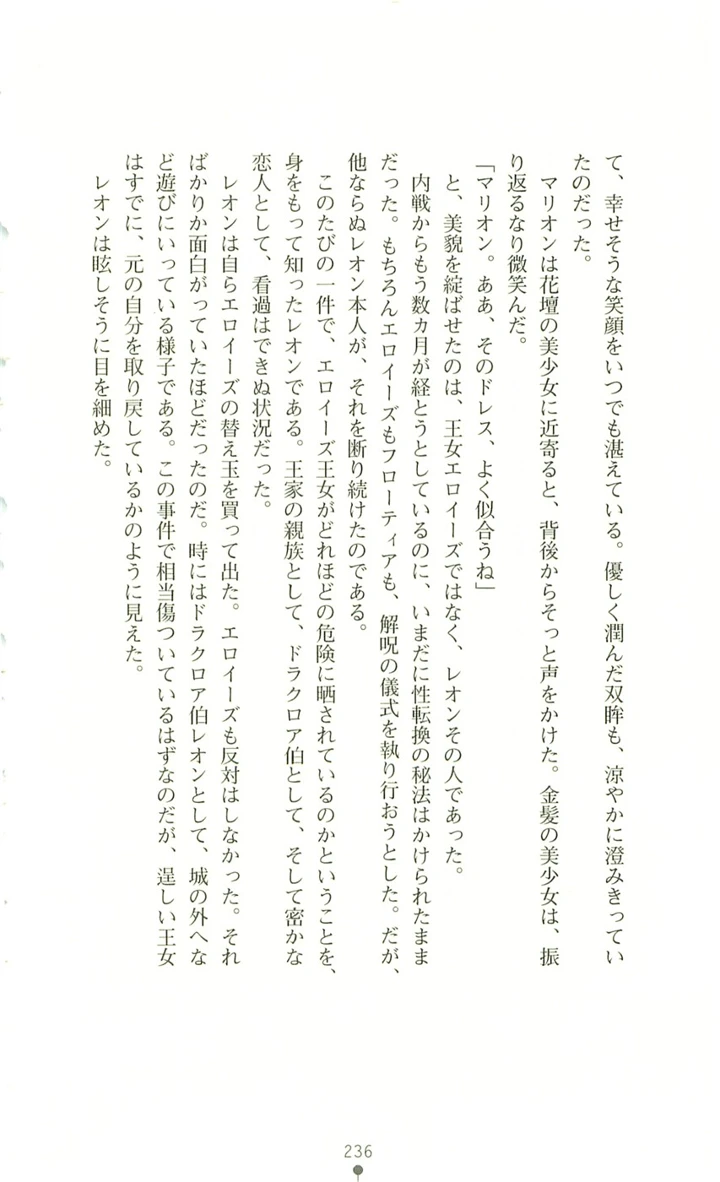 て、幸せそうな笑顔をいつでも湛えている。優しく潤んだ双眸も、涼やかに澄みきってい
たのだった。
マリオンは花壇の美少女に近寄ると、背後からそっと声をかけた。金髪の美少女は、振
り返るなり微笑んだ。
「マリオン。ああ、そのドレス、よく似合うね」
と、美貌を綻ばせたのは、王女エロイーズではなく、レオンその人であった。
内戦からもう数ヵ月が経とうとしているのに、いまだに性転換の秘法はかけられたまま
だった。もちろんエロイーズもフローティアも、解呪の儀式を執り行おうとした。だが、
他ならぬレオン本人が、それを断り続けたのである。
このたびの一件で、エロイーズ王女がどれほどの危険に晒されているのかということを、
身をもって知ったレオンである。王家の親族として、ドラクロア伯として、そして密かな
恋人として、看過はできぬ状況だった。
レオンは自らエロイーズの替え玉を買って出た。エロイーズも反対はしなかった。それ
ばかりか面白がっていたほどだったのだ。時にはドラクロア伯レオンとして、城の外へな
ど遊びにいっている様子である。この事件で相当傷ついているはずなのだが、逞しい王女
はすでに、元の自分を取り戻しているかのように見えた。
レオンは眩しそうに目を細めた。
236